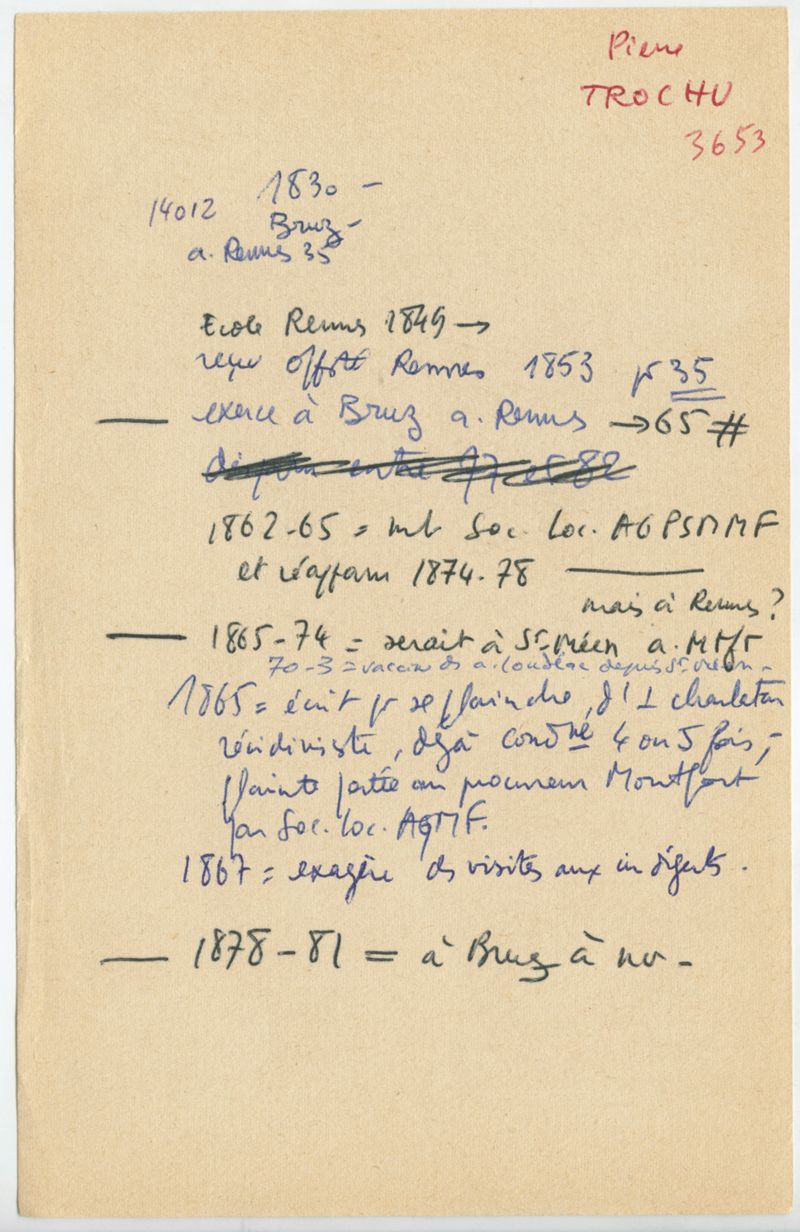 Pierre
TROCHU
3653
1830 -
14012
Bruz -
a. Rennes 35
Ecole Rennes 1849 →
reçu offté Rennes 1853 pr 35
— exerce à Bruz a. Rennes → 65 #
disparu entre 77 et 82
1862-65 = mb Soc. Loc. AGPSMMF
et réapparu 1874-78 —
mais à Rennes ?
— 1865-74 = serait à St-Méen a. Mtft
70-3 = vaccin ds a. Loudéac depuis St-Méen -
1865 = écrit pr se plaindre, d'1 charlatan
récidiviste, déjà condné 4 ou 5 fois, -
plainte portée au procureur Montfort
par Soc. Loc. AGMF.
1867 = exagère ds visites aux indigents.
— 1878 - 81 = à Bruz à nv -